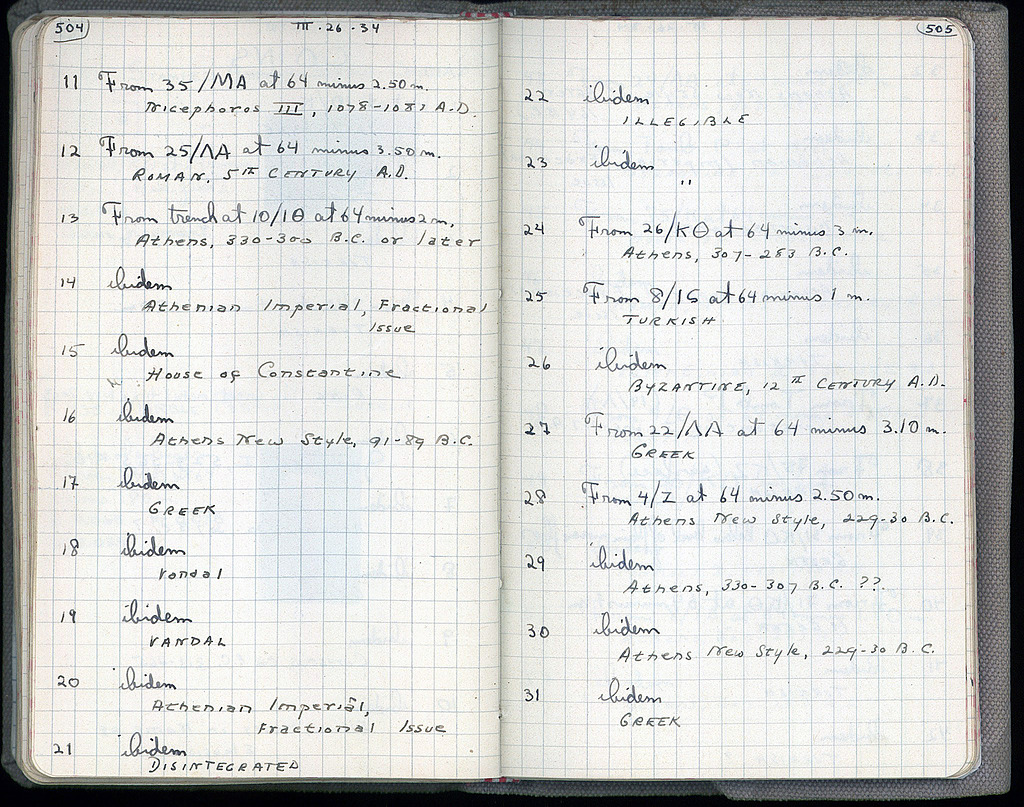 504
III · 26 · 34
11 From 35/MA at 64 minus 2.50 m.
Nicephoros III, 1078-1081 A.D.
12 From 25/ΛA at 64 minus 3.50 m.
ROMAN, 5TH CENTURY A.D.
13 From trench at 10/ΙΘ at 64 minus 2 m.
Athens, 330-300 B.C. or later
14 ibidem
Athenian Imperial, Fractional
Issue
15 ibidem
House of Constantine
16 ibidem
Athens New Style, 91-89 B.C.
17 ibidem
GREEK
18 ibidem
Vandal
19 ibidem
VANDAL
20 ibidem
Athenian Imperial,
Fractional Issue
21 ibidem
DISINTEGRATED
505
22 ibidem
ILLEGIBLE
23 ibidem
"
24 From 26/ΚΘ at 64 minus 3 m.
Athens, 307-283 B.C.
25 From 8/ΙϚ at 64 minus 1 m.
TURKISH
26 ibidem
BYZANTINE, 12TH CENTURY A.D.
27 From 22/ΛA at 64 minus 3.10 m.
GREEK
28 From 4/Z at 64 minus 2.50 m.
Athens New Style, 229-30 B.C.
29 ibidem
Athens, 330-307 B.C. ??.
30 ibidem
Athens New Style, 229-30 B.C.
31 ibidem
GREEK